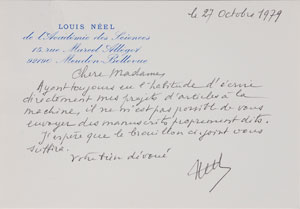 le 27 Octobre 1979
LOUIS NÉEL
de l'Académie des Sciences
15 rue Marcel Allégot
92190 Meudon-Bellevue
Chère Madame,
Ayant toujours eu l'habitude d'écrire
directement mes projets d'articles à la
machine, il ne m'est pas possible de vous
envoyer des manuscrits proprement dits.
J'espère que le brouillon ci-joint vous
suffira.
Votre bien dévoué
Néel